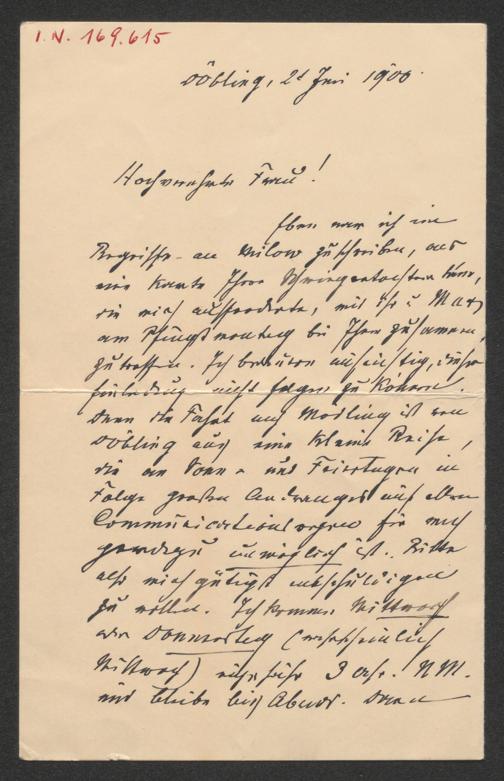 I. N. 169.615
Döbling, 2t Juni 1900.
Hochverehrte Frau!
Eben war ich im
Begriffe an Milow zu schreiben, als
eine Karte Ihrer Schwiegertochter kam,
die mich aufforderte, mit ihr u. Max
am Pfingstmontag bei Ihnen zusammen
zu treffen. Ich bedaure aufrichtig, dieser
Einladung nicht folgen zu können.
Denn die Fahrt nach Mödling ist von
Döbling aus eine kleine Reise,
die an Sonn- und Feiertagen in
Folge großen Andranges auf allen
Communicationswegen für mich
geradezu unmöglich ist. Bitte
also mich gütigst entschuldigen
zu wollen. Ich komme Mittwoch
oder Donnerstag (wahrscheinlich
Mittwoch) ungefähr 3 Uhr. N.M.
und bleibe bis Abend. Denn